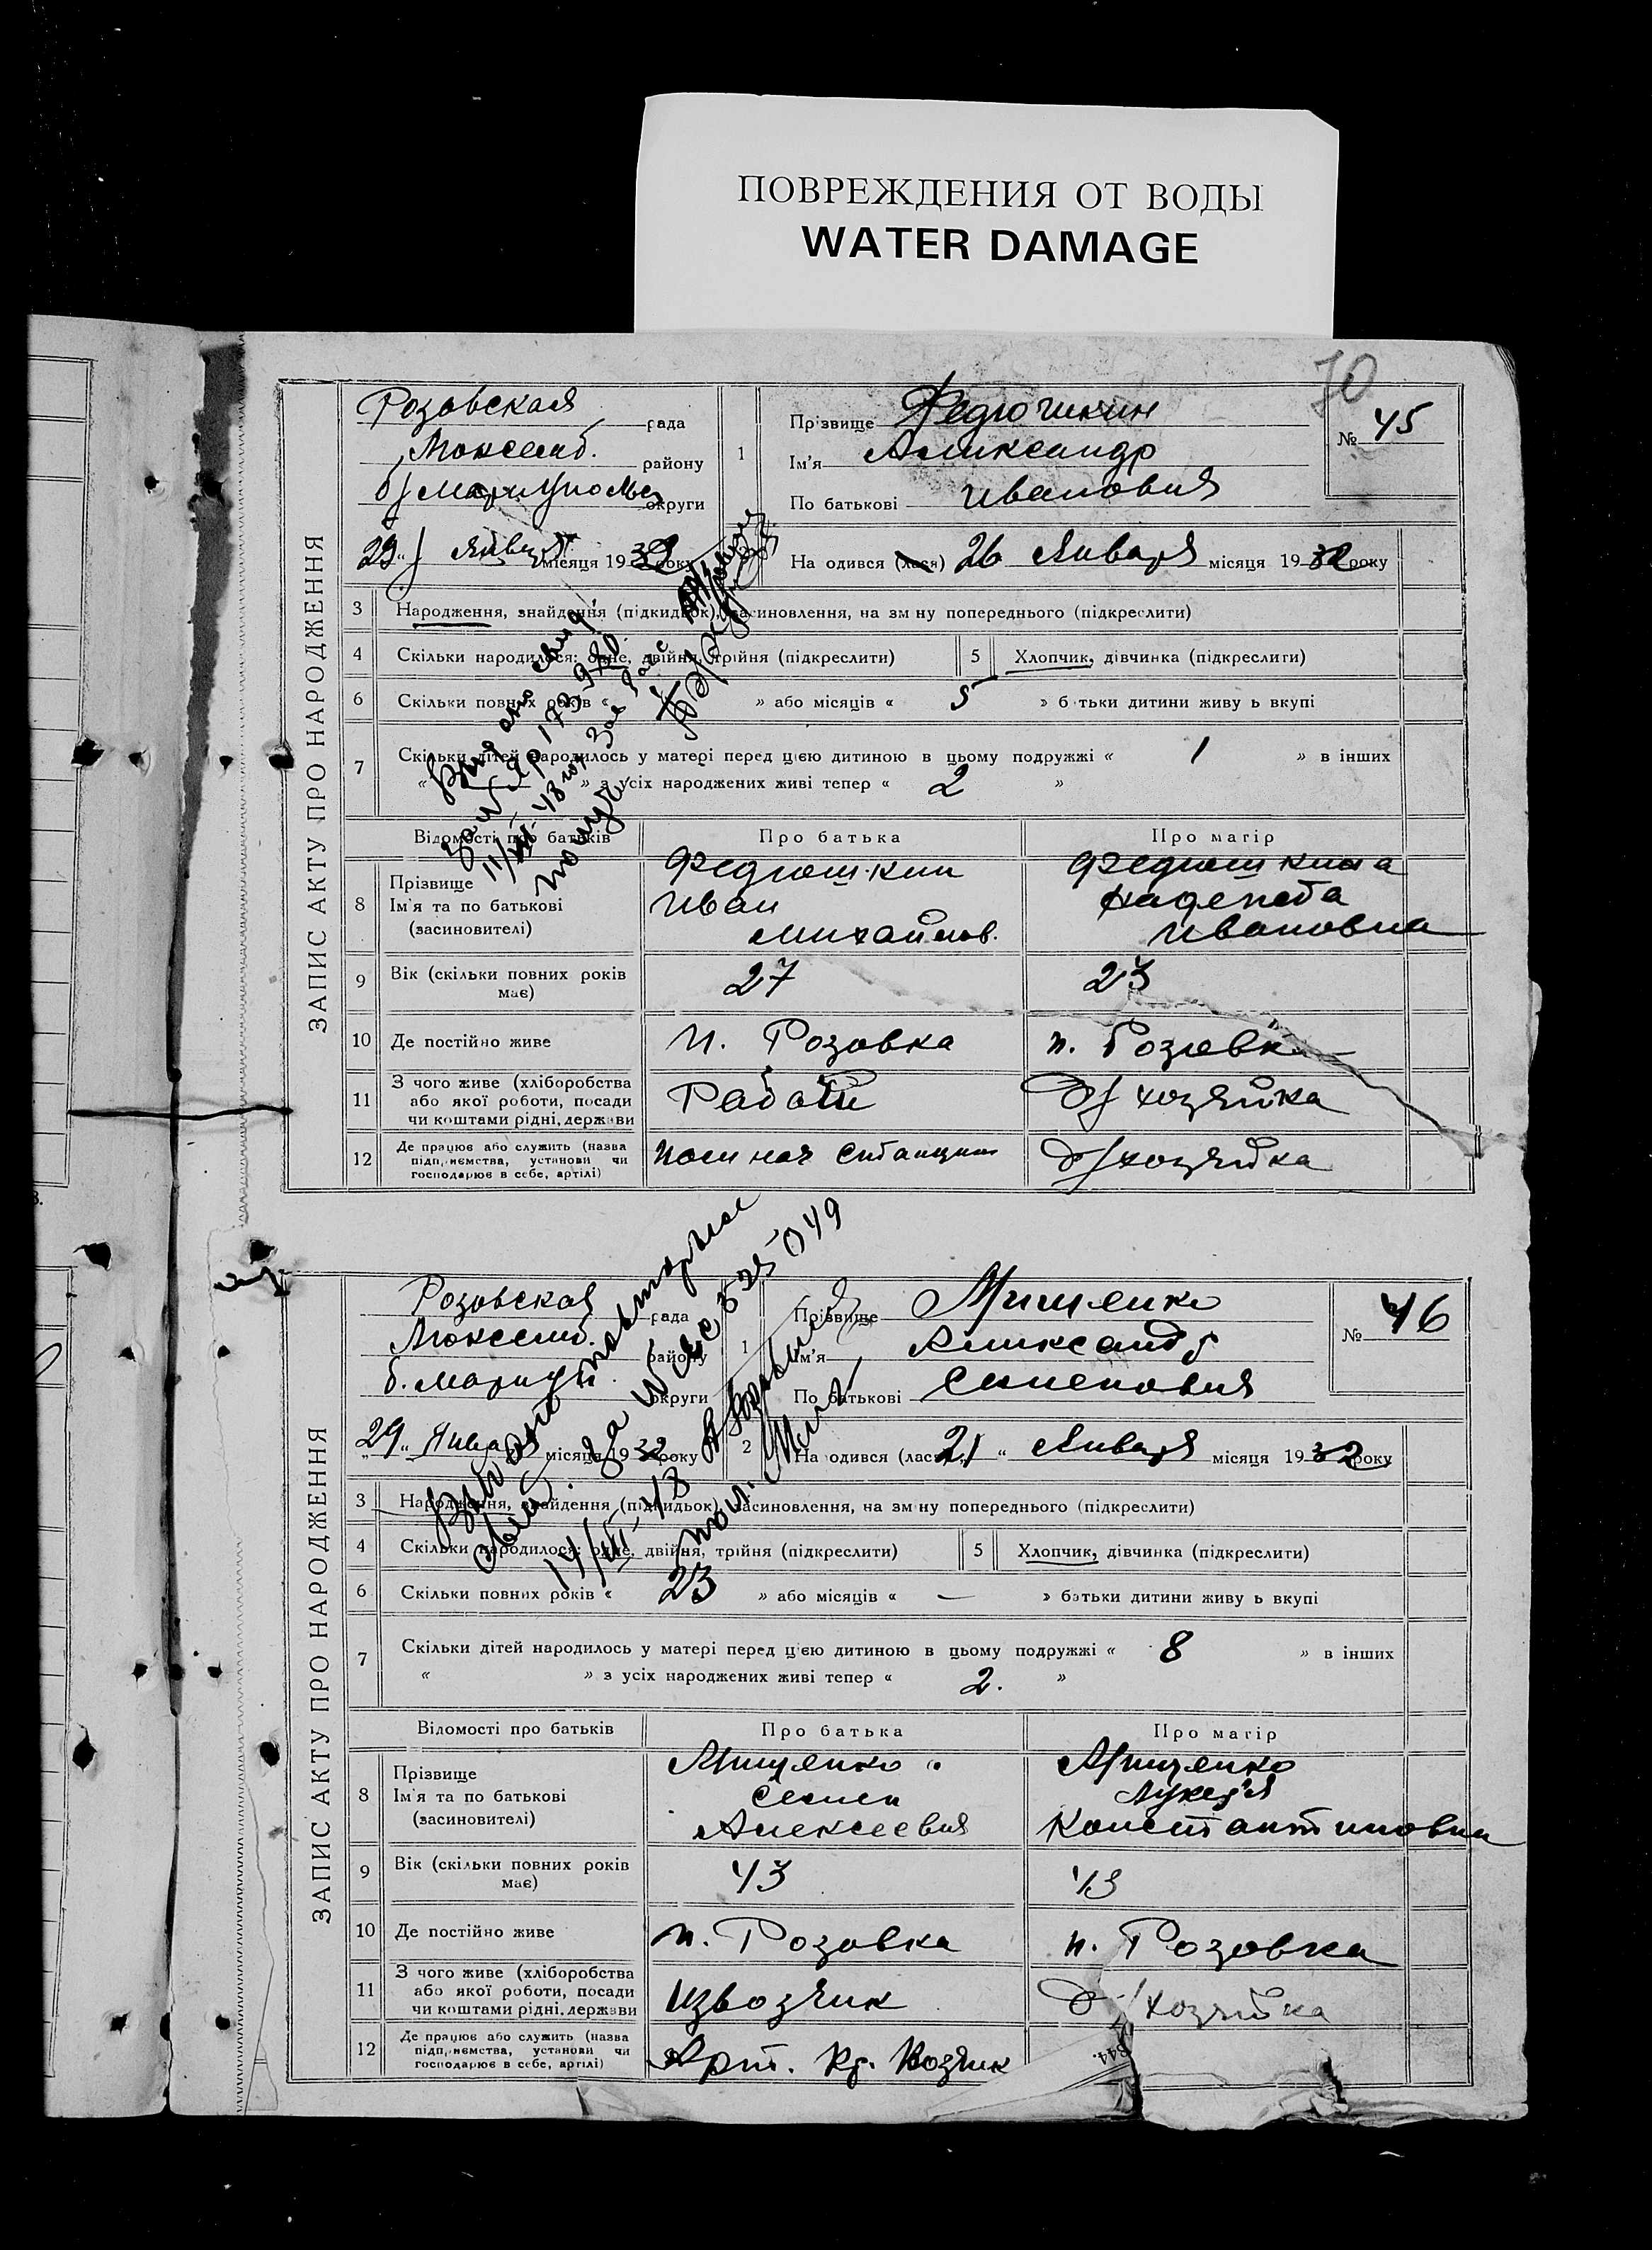 ПОВРЕЖДЕНИЯ ОТ ВОДЫ
WATER DAMAGE
70
ЗАПИС АКТУ ПРО НАРОДЖЕННЯ
Розовская рада
района
б/Мариуполь округи
1
Прізвище Федюшкин
Ім'я Александр
По батькові Иванович
№ 45
29 Января місяця 1932 року
На одився (лася) 26 Января місяця 1932 року
3 Народження, знайдення (підкидьок), засиновлення, на зм ну попереднього (підкреслити)
4 Скільки народилося: одне, двійня, трійня (підкреслити) 5 Хлопчик, дівчинка (підкреслити)
6 Скільки повних років « » або місяців « 5 » б тьки дитини живу ь вкупі
7 Скільки дітей народилось у матері перед цією дитиною в цьому подружжі « 1 » в інших
« — » з усіх народжених живі тепер « 2 »
Відомості про батьків Про батька Про матір
8 Прізвище Ім'я та по батькові (засиновителі)
Федюшкин Иван Михайлов.
Федюшкина Надежда Ивановна
9 Вік (скільки повних років має) 27 23
10 Де постійно живе п. Розовка п. Розовка
11 З чого живе (хліборобства або якої роботи, посади чи коштами рідні, держави
д/хозяйка
12 Де працює або служить (назва підприємства, установи чи господарює в себе, артілі)
д/хозяйка
ЗАПИС АКТУ ПРО НАРОДЖЕННЯ
Розовская рада
району
б. Мариуп. округи
1
Прізвище Мищенко
Ім'я Александр
По батькові Семенович
№ 46
29 Января місяця 1932 року
2 На одився (лася) 21 " Января місяця 1932 року
3 Народження, знайдення (підкидьок), засиновлення, на зм ну попереднього (підкреслити)
4 Скільки народилося: одне, двійня, трійня (підкреслити) 5 Хлопчик, дівчинка (підкреслити)
6 Скільки повних років « 23 » або місяців « — » батьки дитини живу ь вкупі
7 Скільки дітей народилось у матері перед цією дитиною в цьому подружжі « 8 » в інших
« » з усіх народжених живі тепер « 2. »
Відомості про батьків Про батька Про матір
8 Прізвище Ім'я та по батькові (засиновителі)
Мищенко Семен Алексеевич
Мищенко Лукерья Константиновна
9 Вік (скільки повних років має) 43 43
10 Де постійно живе п. Розовка п. Розовка
11 З чого живе (хліборобства або якої роботи, посади чи коштами рідні, держави
Извозчик д/хозяйка
12 Де працює або служить (назва підприємства, установи чи господарює в себе, артілі)
Арт.